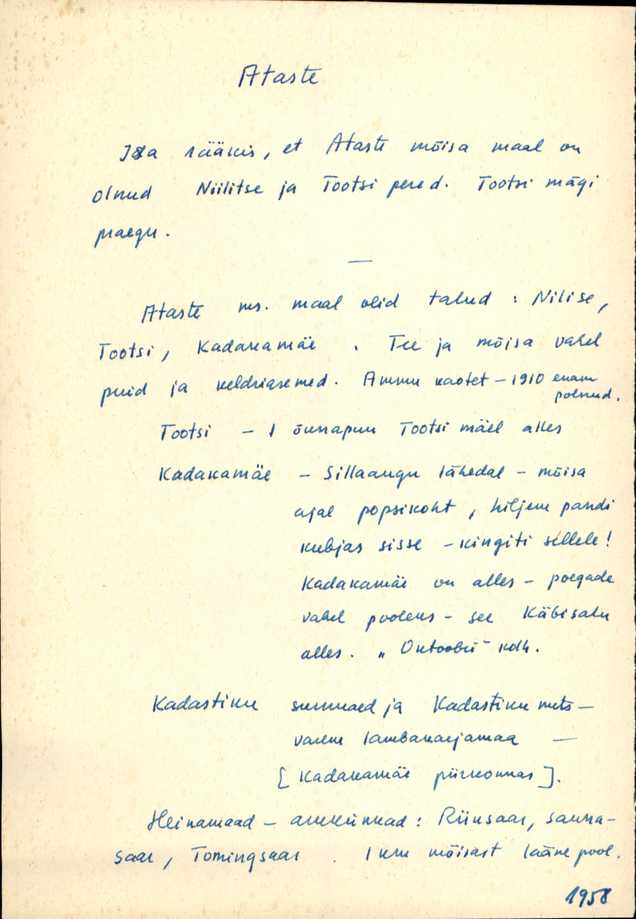 Ataste
Isa rääkis, et Ataste mõisa maal on
olnud Niilitse ja Tootsi pered. Tootsi mägi
praegu.
—
Ataste ms. maal olid talud : Nilise,
Tootsi, Kadakamäe . Tee ja mõisa vahel
puid ja keldriasemed. Ammu kaotet – 1910 enam
polnud.
Tootsi – 1 õunapuu Tootsi mäel alles
Kadakamäe – Sillaaugu lähedal – mõisa
ajal popsikoht, hiljem pandi
kubjas sisse – kingiti sellele!
Kadakamäe on alles – poegade
vahel pooleks – see Käbisalu
alles. „Ontoobri" koh.
Kadastiku surnuaed ja Kadastiku mets –
varem lambakarjamaa –
[Kadakamäe piirkonnas].
Heinamaad – : Riinsaar, sauna-
saar, Tomingsaar . 1 km mõisast lääne pool.
1958